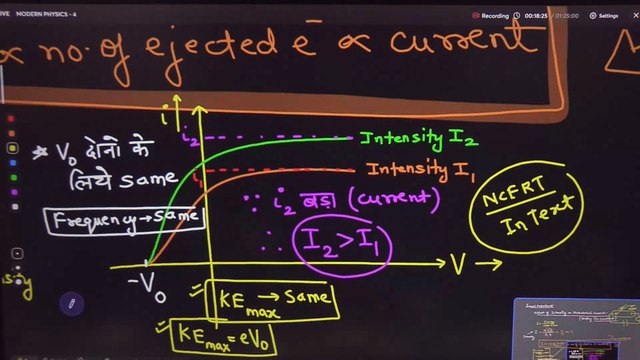 IVE MODERN PHYSICS - 4
Recording 00:18:25 / 01:25:00 Settings
∝ no. of ejected e⁻ ∝ current
i↑
i₂
Intensity I₂
* V₀ दोनो के
लिये same
i₁
Intensity I₁
Frequency → same
∵ i₂ बड़ा (current)
∴ I₂ > I₁
NCERT
InText
V →
-V₀
KE max → same
KE max = eV₀